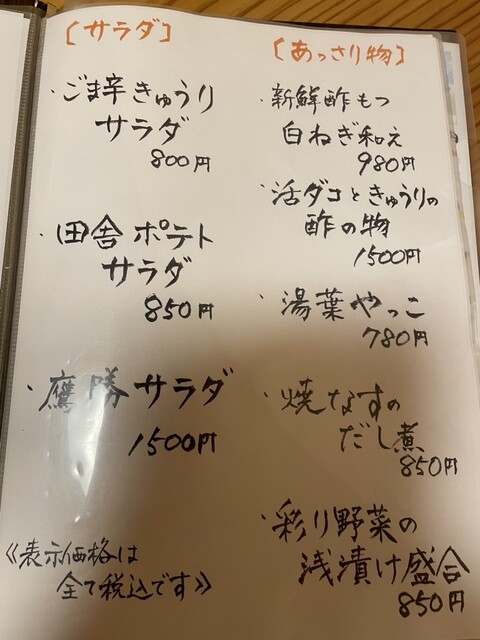 ［サラダ］
・ごま辛きゅうり
サラダ
800円
・田舎ポテト
サラダ
850円
・鷹勝サラダ
1500円
《表示価格は
全て税込です》
［あっさり物］
・新鮮酢もつ
白ねぎ和え
980円
・活ダコときゅうりの
酢の物
1500円
・湯葉やっこ
780円
・焼なすの
だし煮
850円
・彩り野菜の
浅漬け盛合
850円